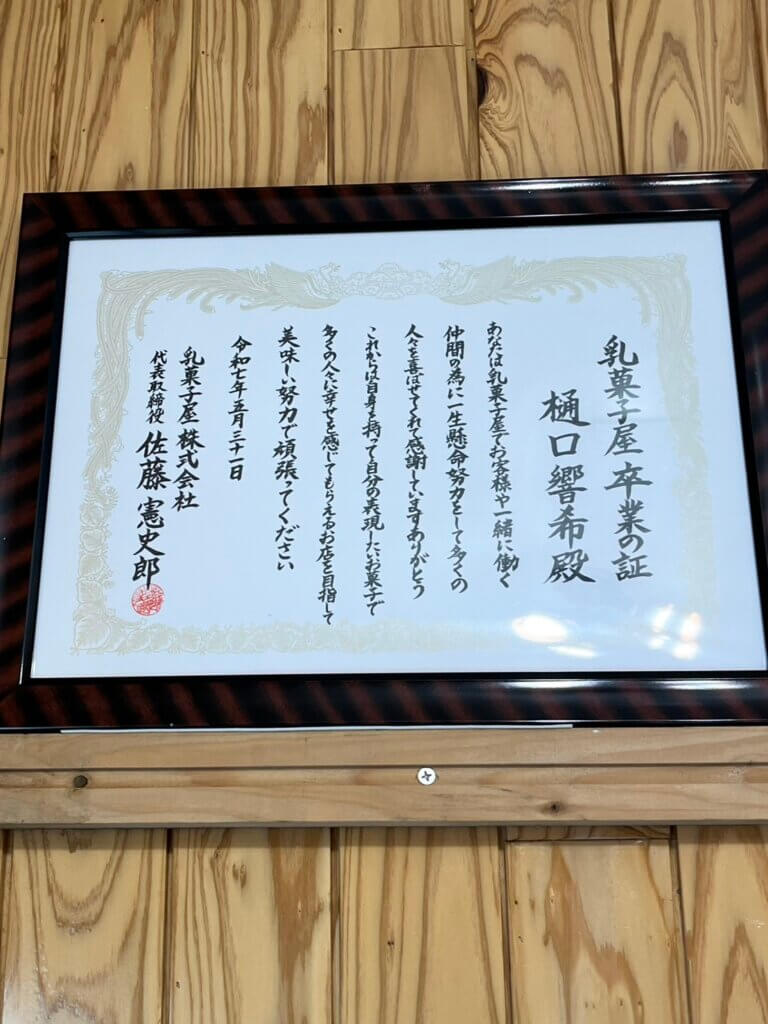 乳菓子屋 卒業の証
樋口響希殿
あなたは乳菓子屋でお客様や一緒に働く
仲間の為に一生懸命努力をして多くの
人々を喜ばせてくれて感謝していますありがとう
これからは自身を持って自分の表現したお菓子で
多くの人に幸せを感じてもらえるお店を目指して
美味しい努力で頑張ってください
令和七年五月三十一日
乳菓子屋 株式会社
代表取締役 佐藤憲史郎